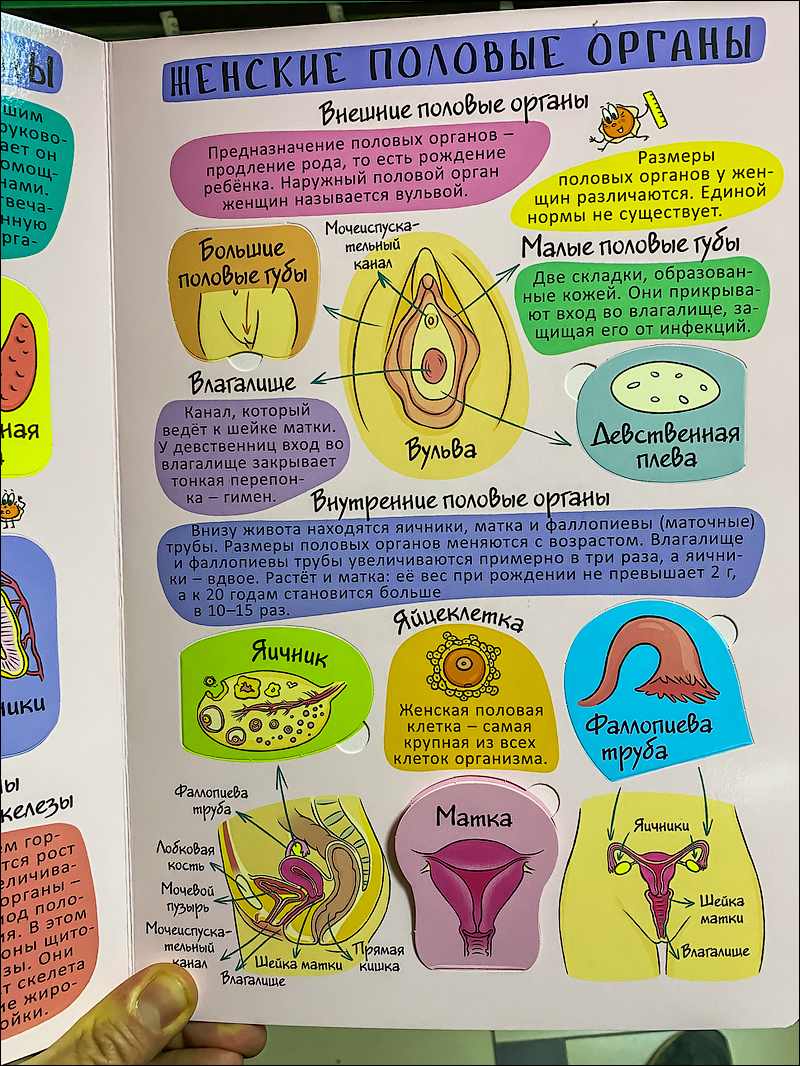 ЖЕНСКИЕ ПОЛОВЫЕ ОРГАНЫ
Внешние половые органы
Предназначение половых органов –
продление рода, то есть рождение
ребёнка. Наружный половой орган
женщин называется вульвой.
Размеры
половых органов у жен-
щин различаются. Единой
нормы не существует.
Большие
половые губы
Мочеиспуска-
тельный
канал
Малые половые губы
Две складки, образован-
ные кожей. Они прикрыва-
ют вход во влагалище, за-
щищая его от инфекций.
Влагалище
Канал, который
ведёт к шейке матки.
У девственниц вход во
влагалище закрывает
тонкая перепон-
ка – гимен.
Вульва
Девственная
плева
Внутренние половые органы
Внизу живота находятся яичники, матка и фаллопиевы (маточные)
трубы. Размеры половых органов меняются с возрастом. Влагалище
и фаллопиевы трубы увеличиваются примерно в три раза, а яични-
ки – вдвое. Растёт и матка: её вес при рождении не превышает 2 г,
а к 20 годам становится больше
в 10–15 раз.
Яичник
Яйцеклетка
Женская половая
клетка – самая
крупная из всех
клеток организма.
Фаллопиева
труба
Фаллопиева
труба
Лобковая
кость
Мочевой
пузырь
Мочеиспуска-
тельный
канал
Влагалище
Шейка матки
Прямая
кишка
Матка
Яичники
Шейка
матки
Влагалище